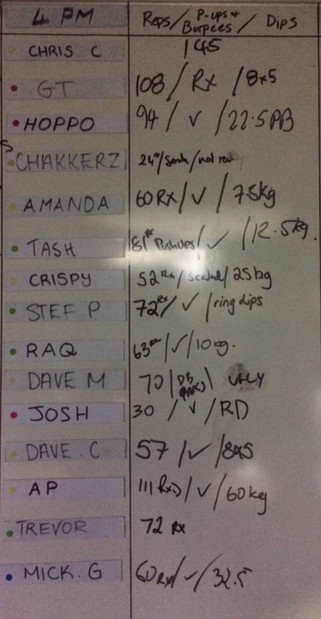 4 PM Reps / P-ups + Burpees / Dips
CHRIS C 145
GT 108 / Rx / 8x5
HOPPO 94 / ✓ / 22.5 PB
CHAKKERZ
AMANDA 60 RX / ✓ / 75kg
TASH 81 Rx Pushups / ✓ / 12.5kg.
CRISPY 52 Rx / scaled / 25kg
STEF P 72 Rx / ✓ / ring dips
RAQ 63 Rx / ✓ / 10kg.
DAVE M 70
JOSH 30 / ✓ / RD
DAVE.C 57 / ✓ / 8x5
AP 111 Rx / ✓ / 60kg
TREVOR 72 Rx
MICK.G 60 Rx / ✓ / 32.5